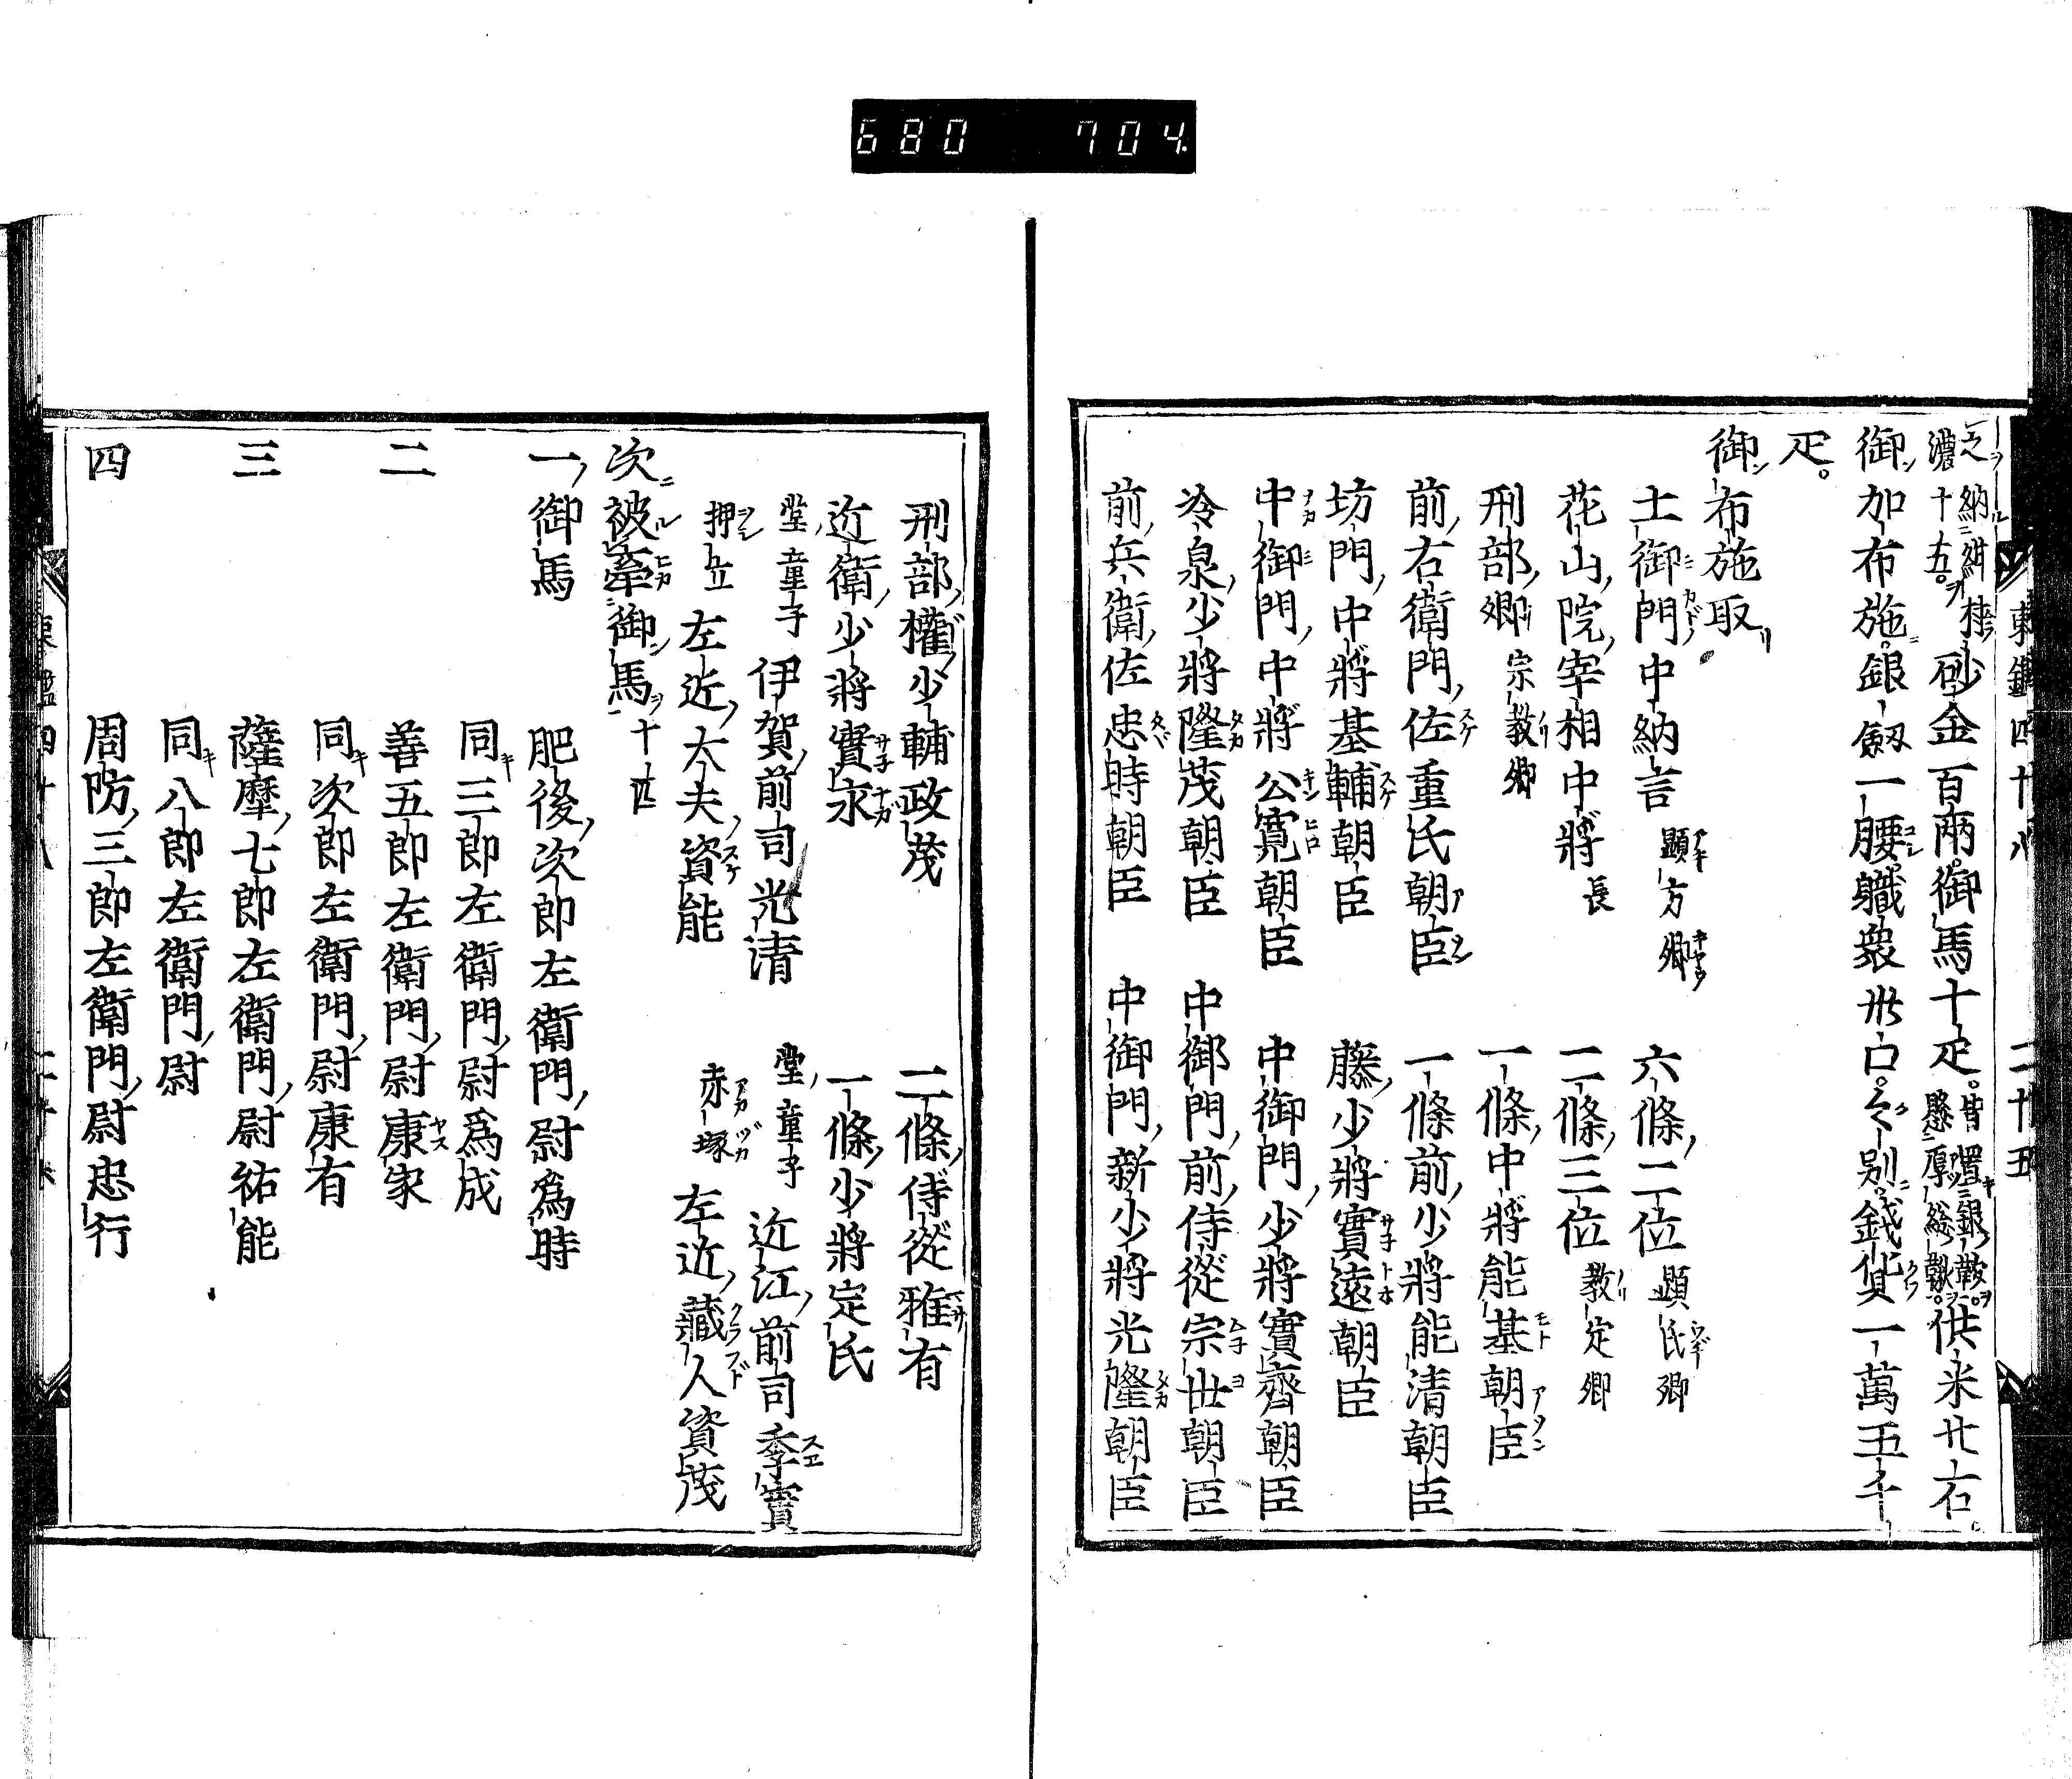 680 704
東鑑四十八 二十五
濃十五 之 納紺 砂金百兩御馬十疋。皆置銀鞍懸厚総鞦供米廿石。
御加布施銀劔一腰職衆卅口。々別錢貨一萬五千
疋。
御布施取
土御門中納言 顯方卿 六條二位 顯氏卿
花山院宰相中將 長 二條三位 教定卿
刑部卿 宗教卿 一條中將能基朝臣
前右衛門佐重氏朝臣 一條前少將能清朝臣
坊門中將基輔朝臣 藤少將實遠朝臣
中御門中將公寛朝臣 中御門少將實齊朝臣
冷泉少將隆茂朝臣 中御門前侍從宗世朝臣
前兵衛佐忠時朝臣 中御門新少將光隆朝臣
刑部權少輔政茂 二條侍從雅有
近衛少將實永 一條少將定氏
堂童子 伊賀前司光清 堂童子 近江前司季實
押立 左近大夫資能 赤塚 左近藏人資茂
次被牽御馬十疋
一御馬 肥後次郎左衛門尉爲時
同三郎左衛門尉爲成
二 善五郎左衛門尉康家
同次郎左衛門尉康有
三 薩摩七郎左衛門尉祐能
同八郎左衛門尉
四 周防三郎左衛門尉忠行